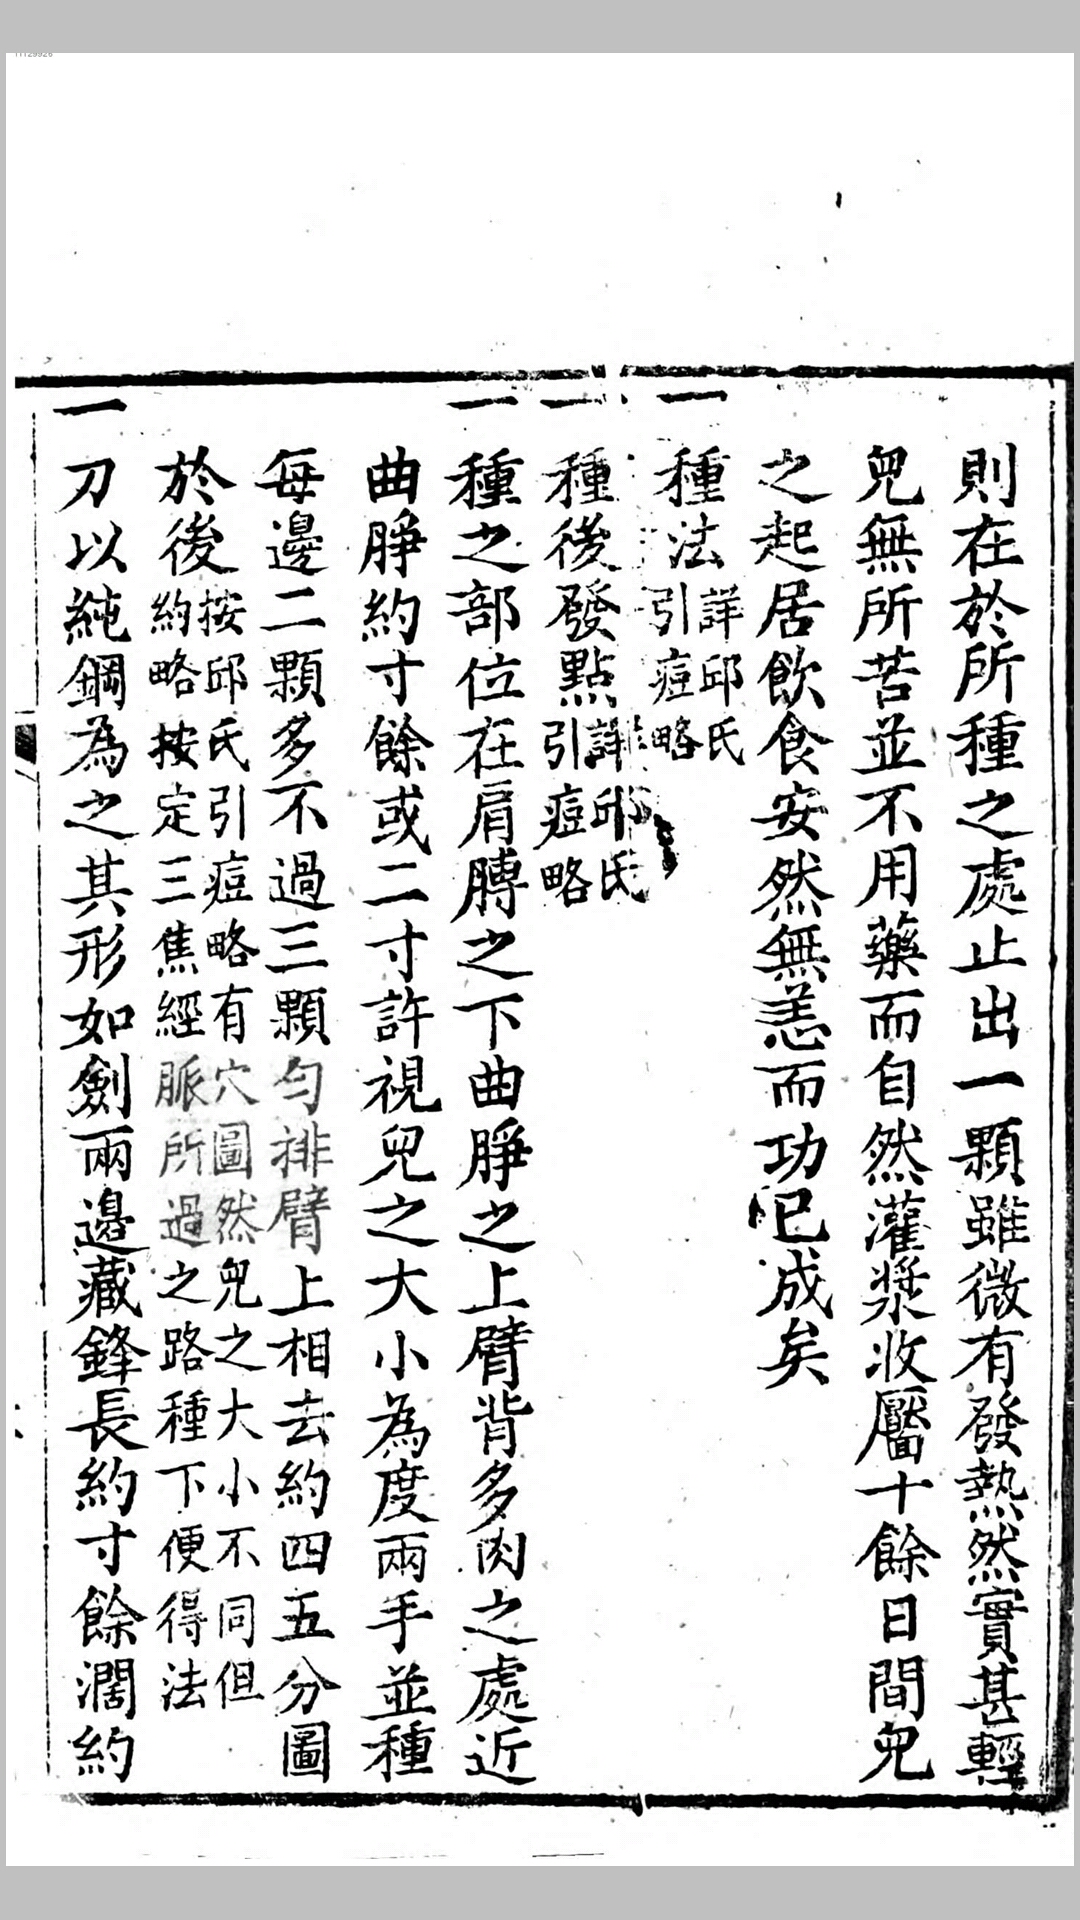 則在於所種之處止出一顆雖微有發熱然實甚輕
兒無所苦並不用藥而自然灌漿收靨十餘日間兒
之起居飲食安然無恙而功已成矣
一種法詳邱氏引痘略
一種後發點詳邱氏引痘略
一種之部位在肩膊之下曲睜之上臂背多肉之處近
曲睜約寸餘或二寸許視兒之大小為度兩手並種
每邊二顆多不過三顆勻排臂上相去約四五分圖
於後按邱氏引痘略有穴圖然兒之大小不同但約略按定三焦經脈所過之路種下便得法
一刀以純鋼為之其形如劍兩邊藏鋒長約寸餘濶約